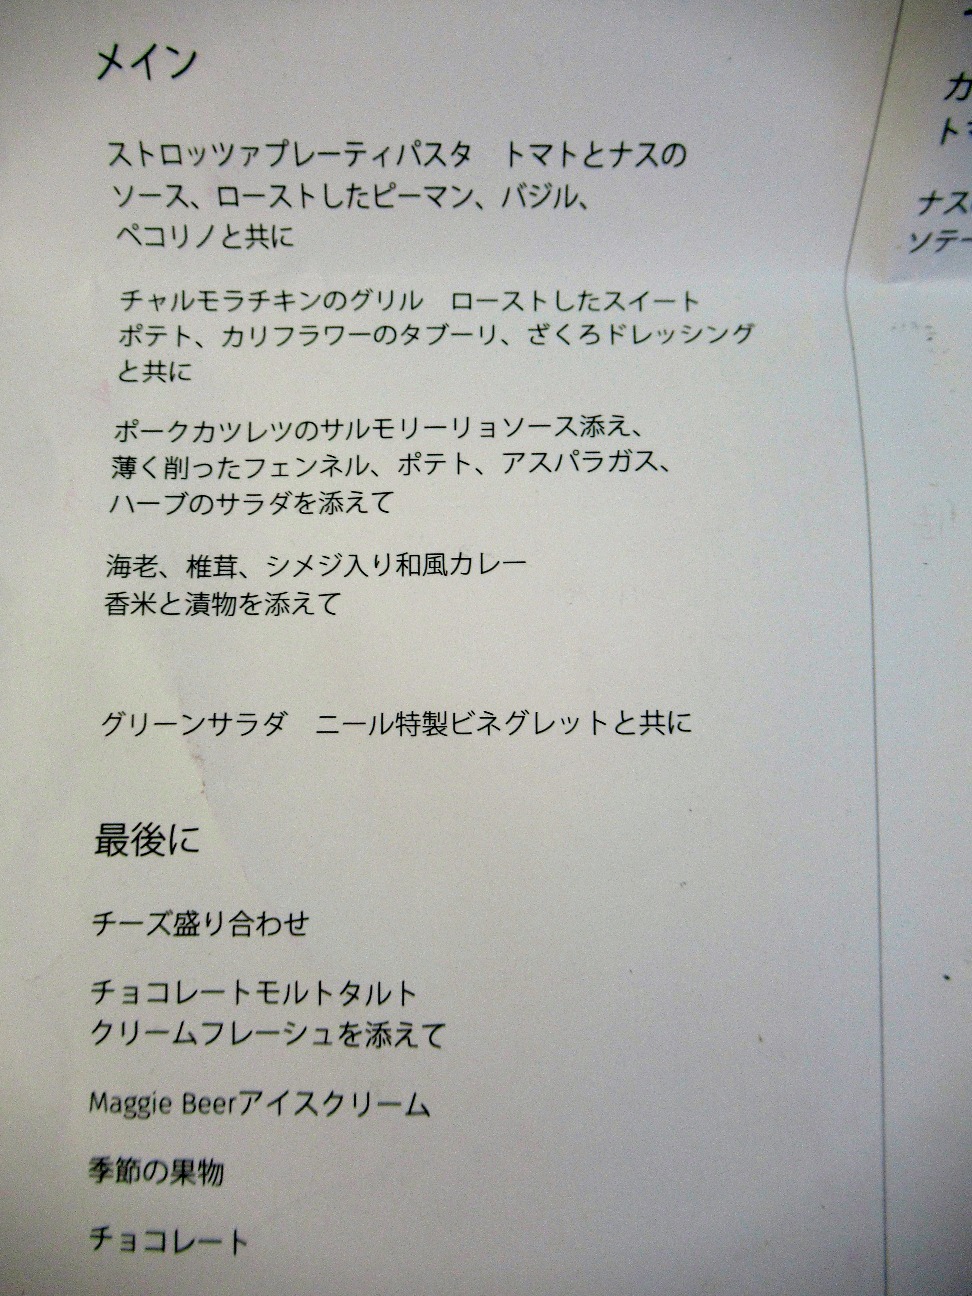 メイン
ストロッツァプレーティパスタ　トマトとナスの
ソース、ローストしたピーマン、バジル、
ペコリノと共に
チャルモラチキンのグリル　ローストしたスイート
ポテト、カリフラワーのタブーリ、ざくろドレッシング
と共に
ポークカツレツのサルモリーリョソース添え、
薄く削ったフェンネル、ポテト、アスパラガス、
ハーブのサラダを添えて
海老、椎茸、シメジ入り和風カレー
香米と漬物を添えて
グリーンサラダ　ニール特製ビネグレットと共に
最後に
チーズ盛り合わせ
チョコレートモルトタルト
クリームフレーシュを添えて
Maggie Beerアイスクリーム
季節の果物
チョコレート
カ
ト
ナス
ソテー